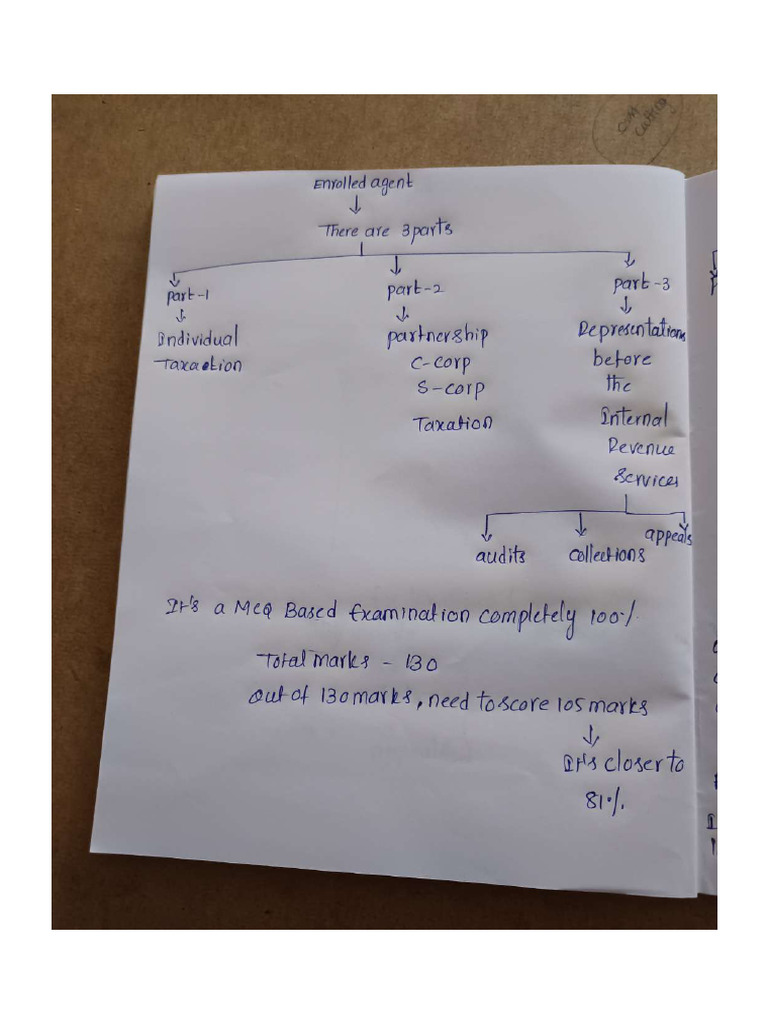 Enrolled agent
There are 3 parts
part-1 part-2 part-3
Individual partnership Representations
Taxaction C-corp before
S-corp the
Taxation Internal
Revenue
Services
audits collections appeals
It's a MCQ Based Examination completely 100%.
Total marks - 130
out of 130 marks, need to score 105 marks
It's closer to
81%.